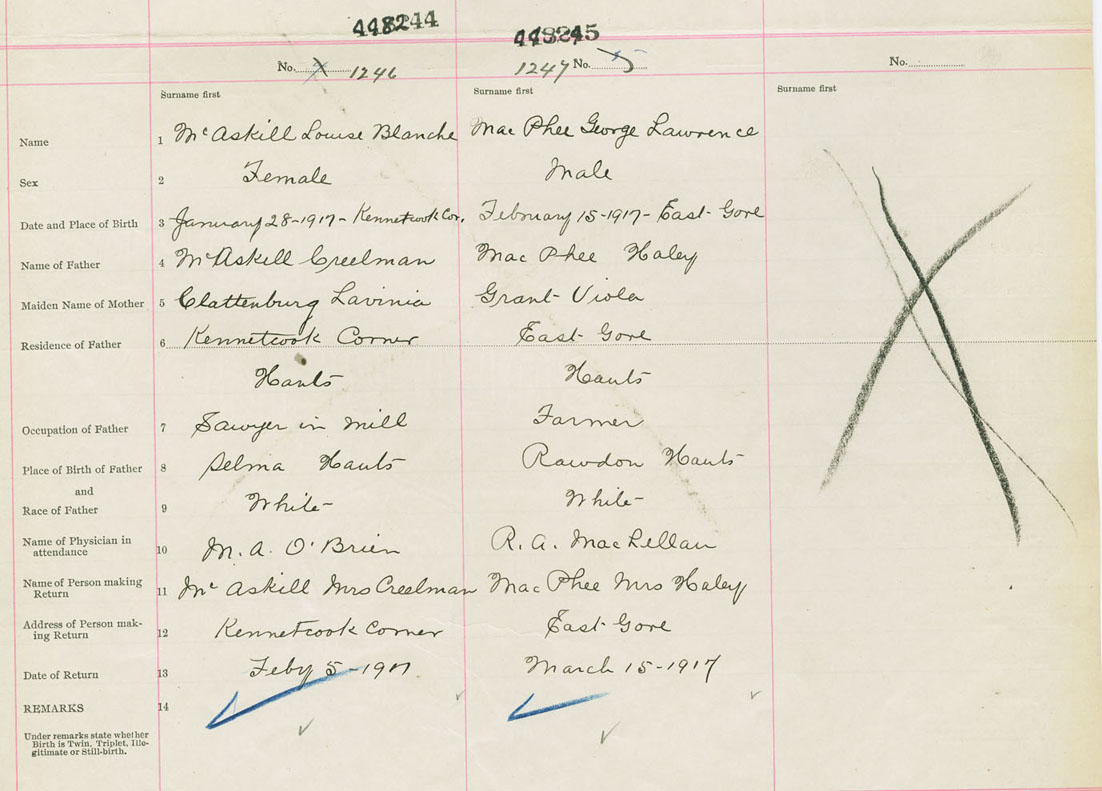 448244
448245
No. 1246
1247 No. 5
No.
Surname first
Surname first
Surname first
Name 1 Mc Askill Louise Blanche Mac Phee George Lawrence
Sex 2 Female Male
Date and Place of Birth 3 January 28-1917- Kennetcook Cor. February 15-1917- East Gore
Name of Father 4 Mc Askill Creelman Mac Phee Haley
Maiden Name of Mother 5 Clattenburg Lavinia Grant Viola
Residence of Father 6 Kennetcook Corner East Gore
Hants Hants
Occupation of Father 7 Sawyer in Mill Farmer
Place of Birth of Father 8 Selma Hants Rawdon Hants
and
Race of Father 9 White- White-
Name of Physician in
attendance 10 M. A. O'Brien R. A. MacLellan
Name of Person making
Return 11 Mc Askill Mrs Creelman Mac Phee Mrs Haley
Address of Person mak-
ing Return 12 Kennetcook Corner East Gore
Date of Return 13 Feby 5-1917 March 15-1917
REMARKS 14
Under remarks state whether
Birth is Twin, Triplet, Ille-
gitimate or Still-birth.